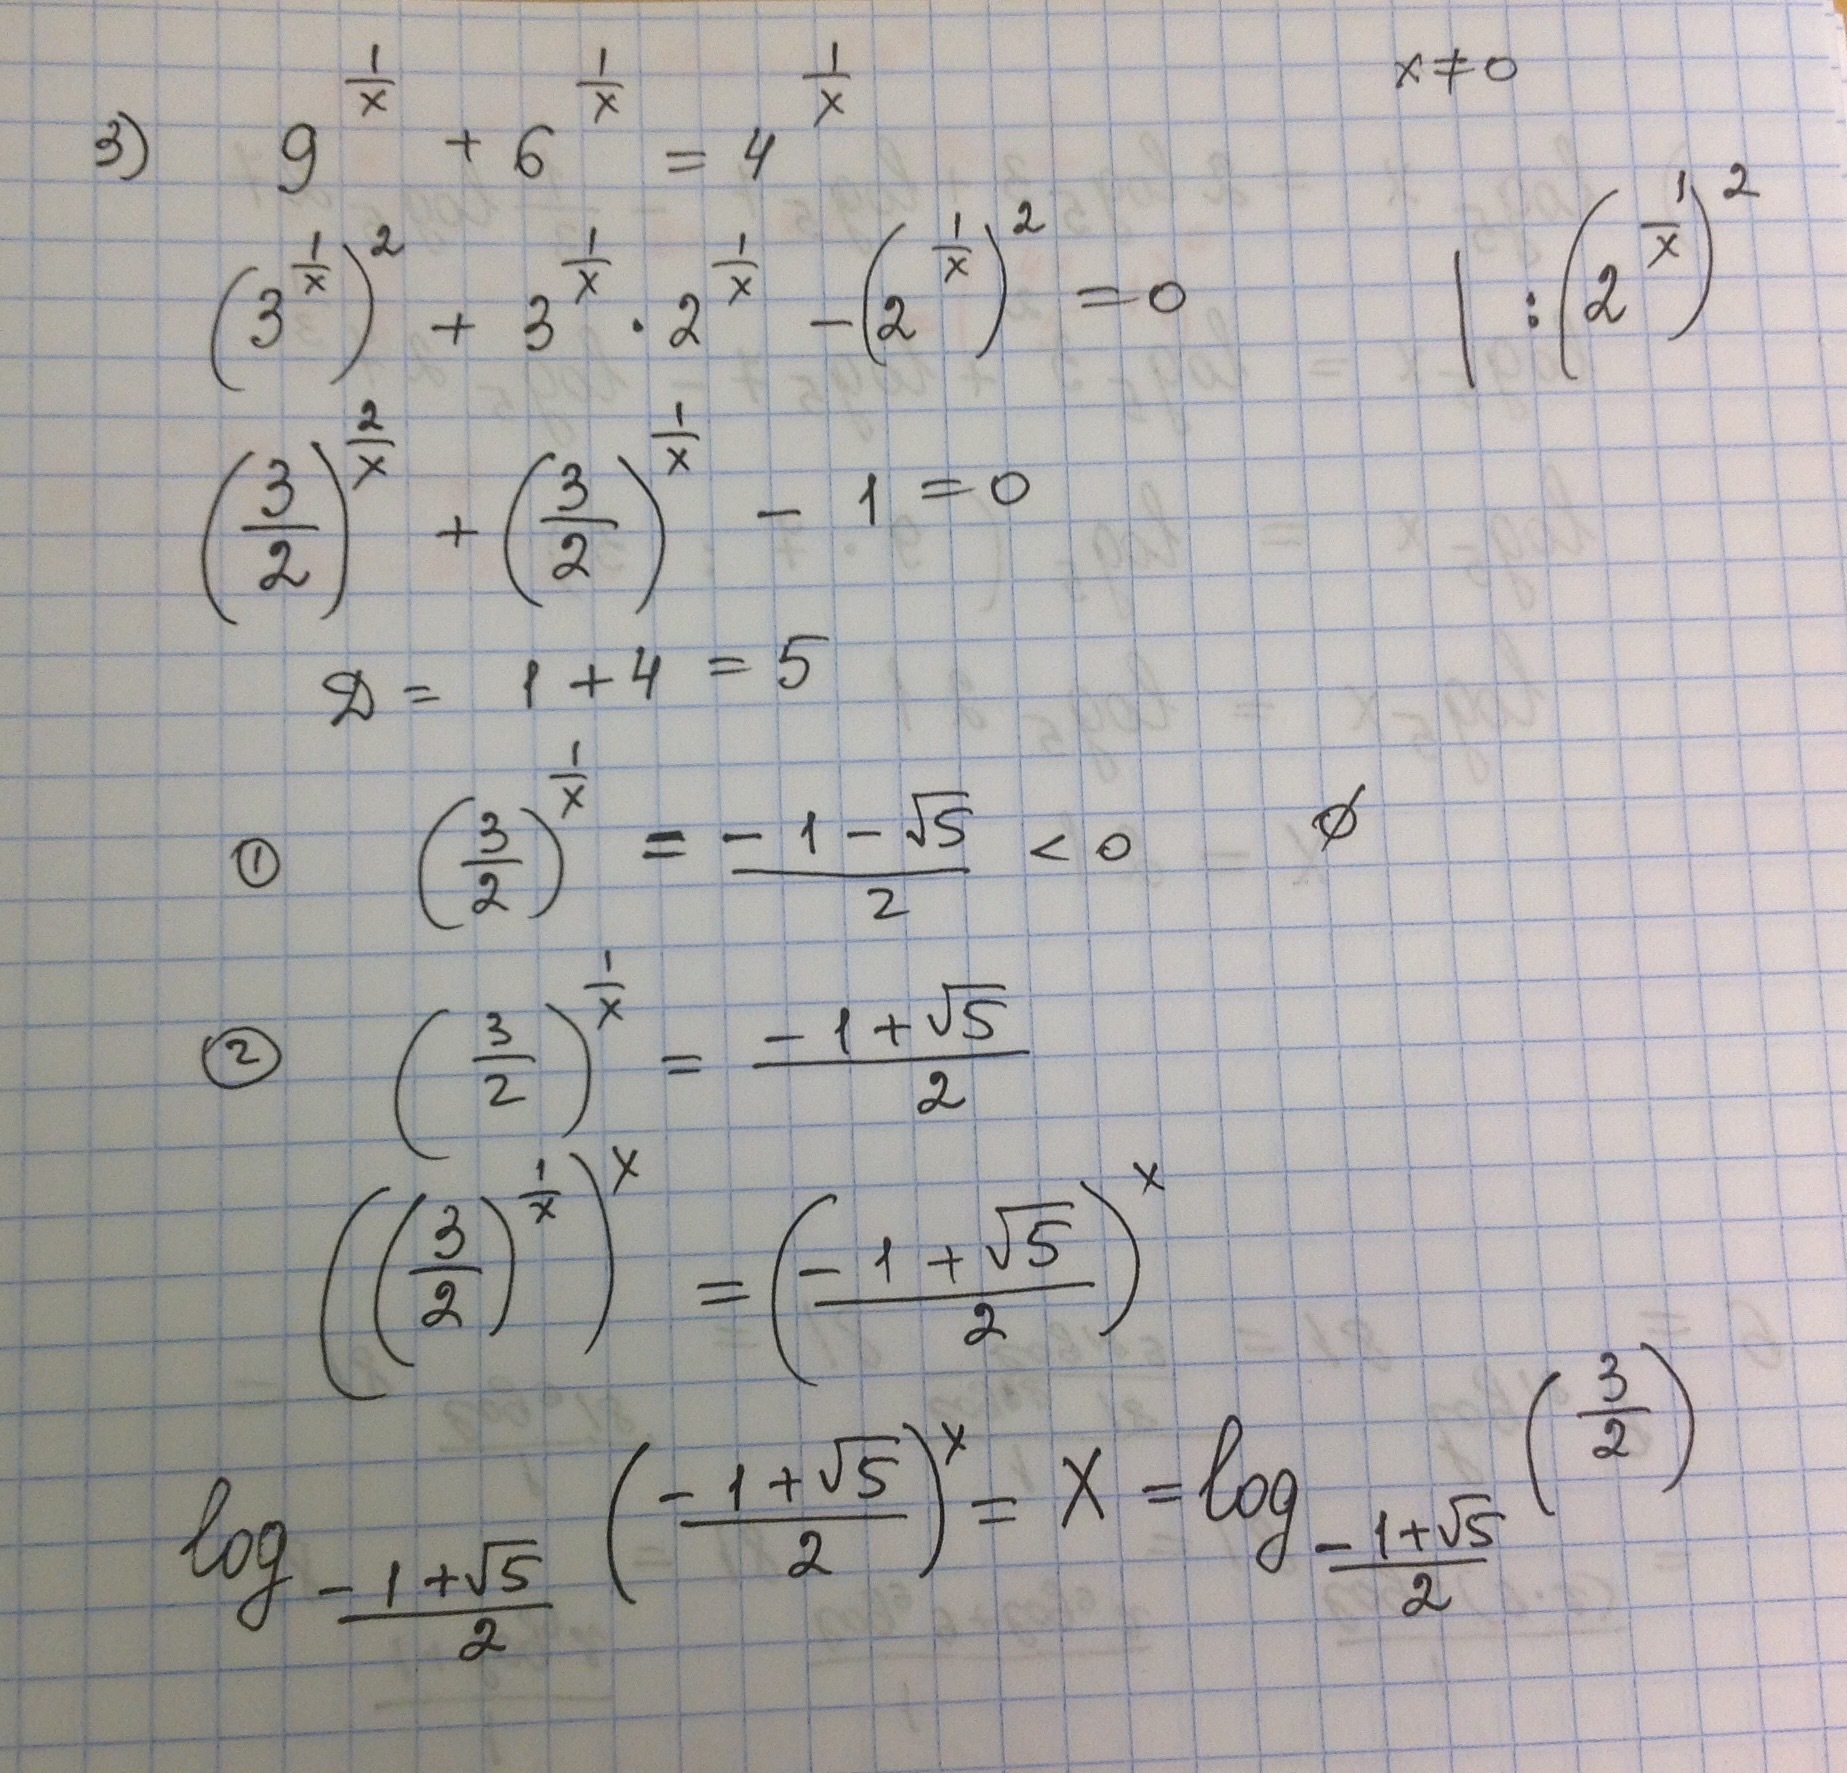 3) 9^(1/x) + 6^(1/x) = 4^(1/x) x ≠ 0
(3^(1/x))^2 + 3^(1/x) · 2^(1/x) − (2^(1/x))^2 = 0 | : (2^(1/x))^2
(3/2)^(2/x) + (3/2)^(1/x) − 1 = 0
D = 1 + 4 = 5
① (3/2)^(1/x) = (−1 − √5)/2 < 0 ∅
② (3/2)^(1/x) = (−1 + √5)/2
((3/2)^(1/x))^x = ((−1 + √5)/2)^x
log_((−1+√5)/2) ((−1 + √5)/2)^x = x = log_((−1+√5)/2) (3/2)